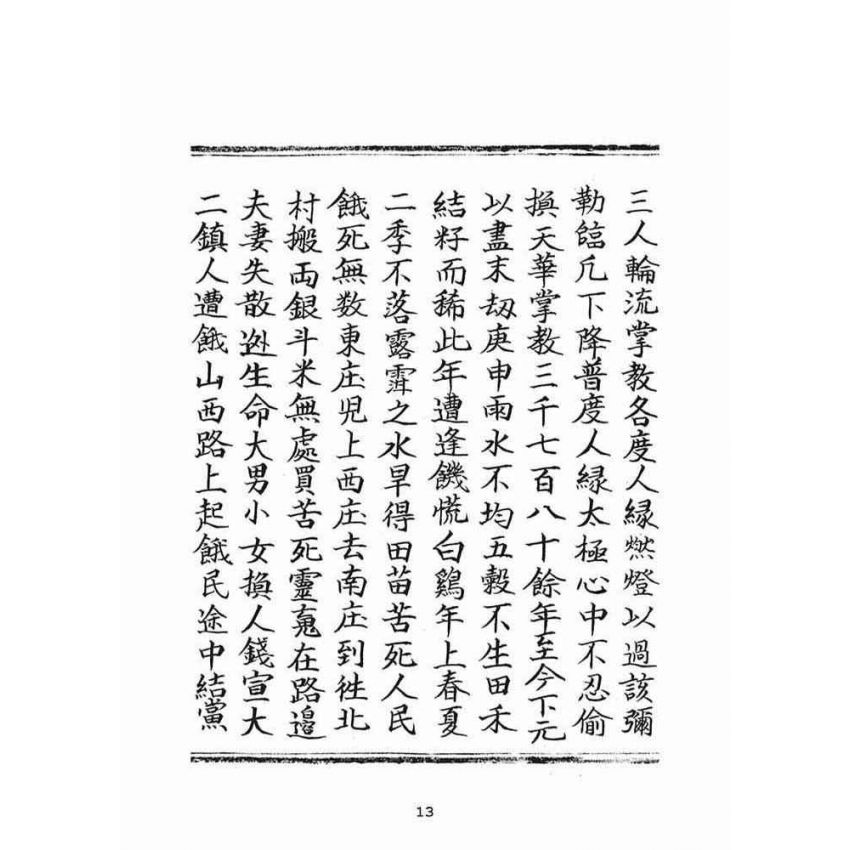 三人輪流掌教各度人緣燃燈以過該彌
勒臨凢下降普度人緣太極心中不忍偷
換天華掌教三千七百八十餘年至今下元
以盡末刼庚申雨水不均五穀不生田禾
結籽而稀此年遭逢饑慌白鷄年上春夏
二季不落露霑之水旱得田苗苦死人民
餓死無数東庄児上西庄去南庄到徃北
村搬両銀斗米無處買苦死靈䰟在路邉
夫妻失散迯生命大男小女換人錢宣大
二鎮人遭餓山西路上起餓民途中結黨
13